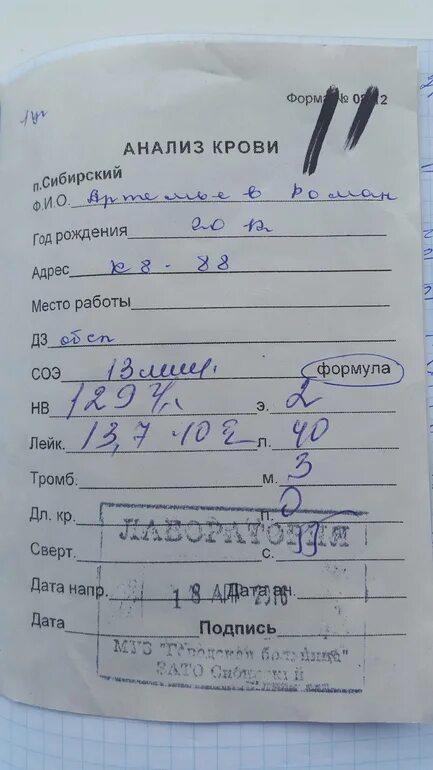 Форма № 02 12
11
АНАЛИЗ КРОВИ
п.Сибирский
Ф.И.О. Артемьев Роман
Год рождения 2012
Адрес к 8 - 88
Место работы
ДЗ обсл
СОЭ 13 мм/ч. формула
НВ 129 г/л э. 2
Лейк. 13,7 · 10 л. 40
Тромб. м. 3
Дл. кр. п. 0
ЛАБОРАТОРИЯ
Сверт. с. 55
Дата напр. Дата ан.
18 АПР 2016
Дата Подпись
МУЗ "Городская больница"
ЗАТО Сибирский